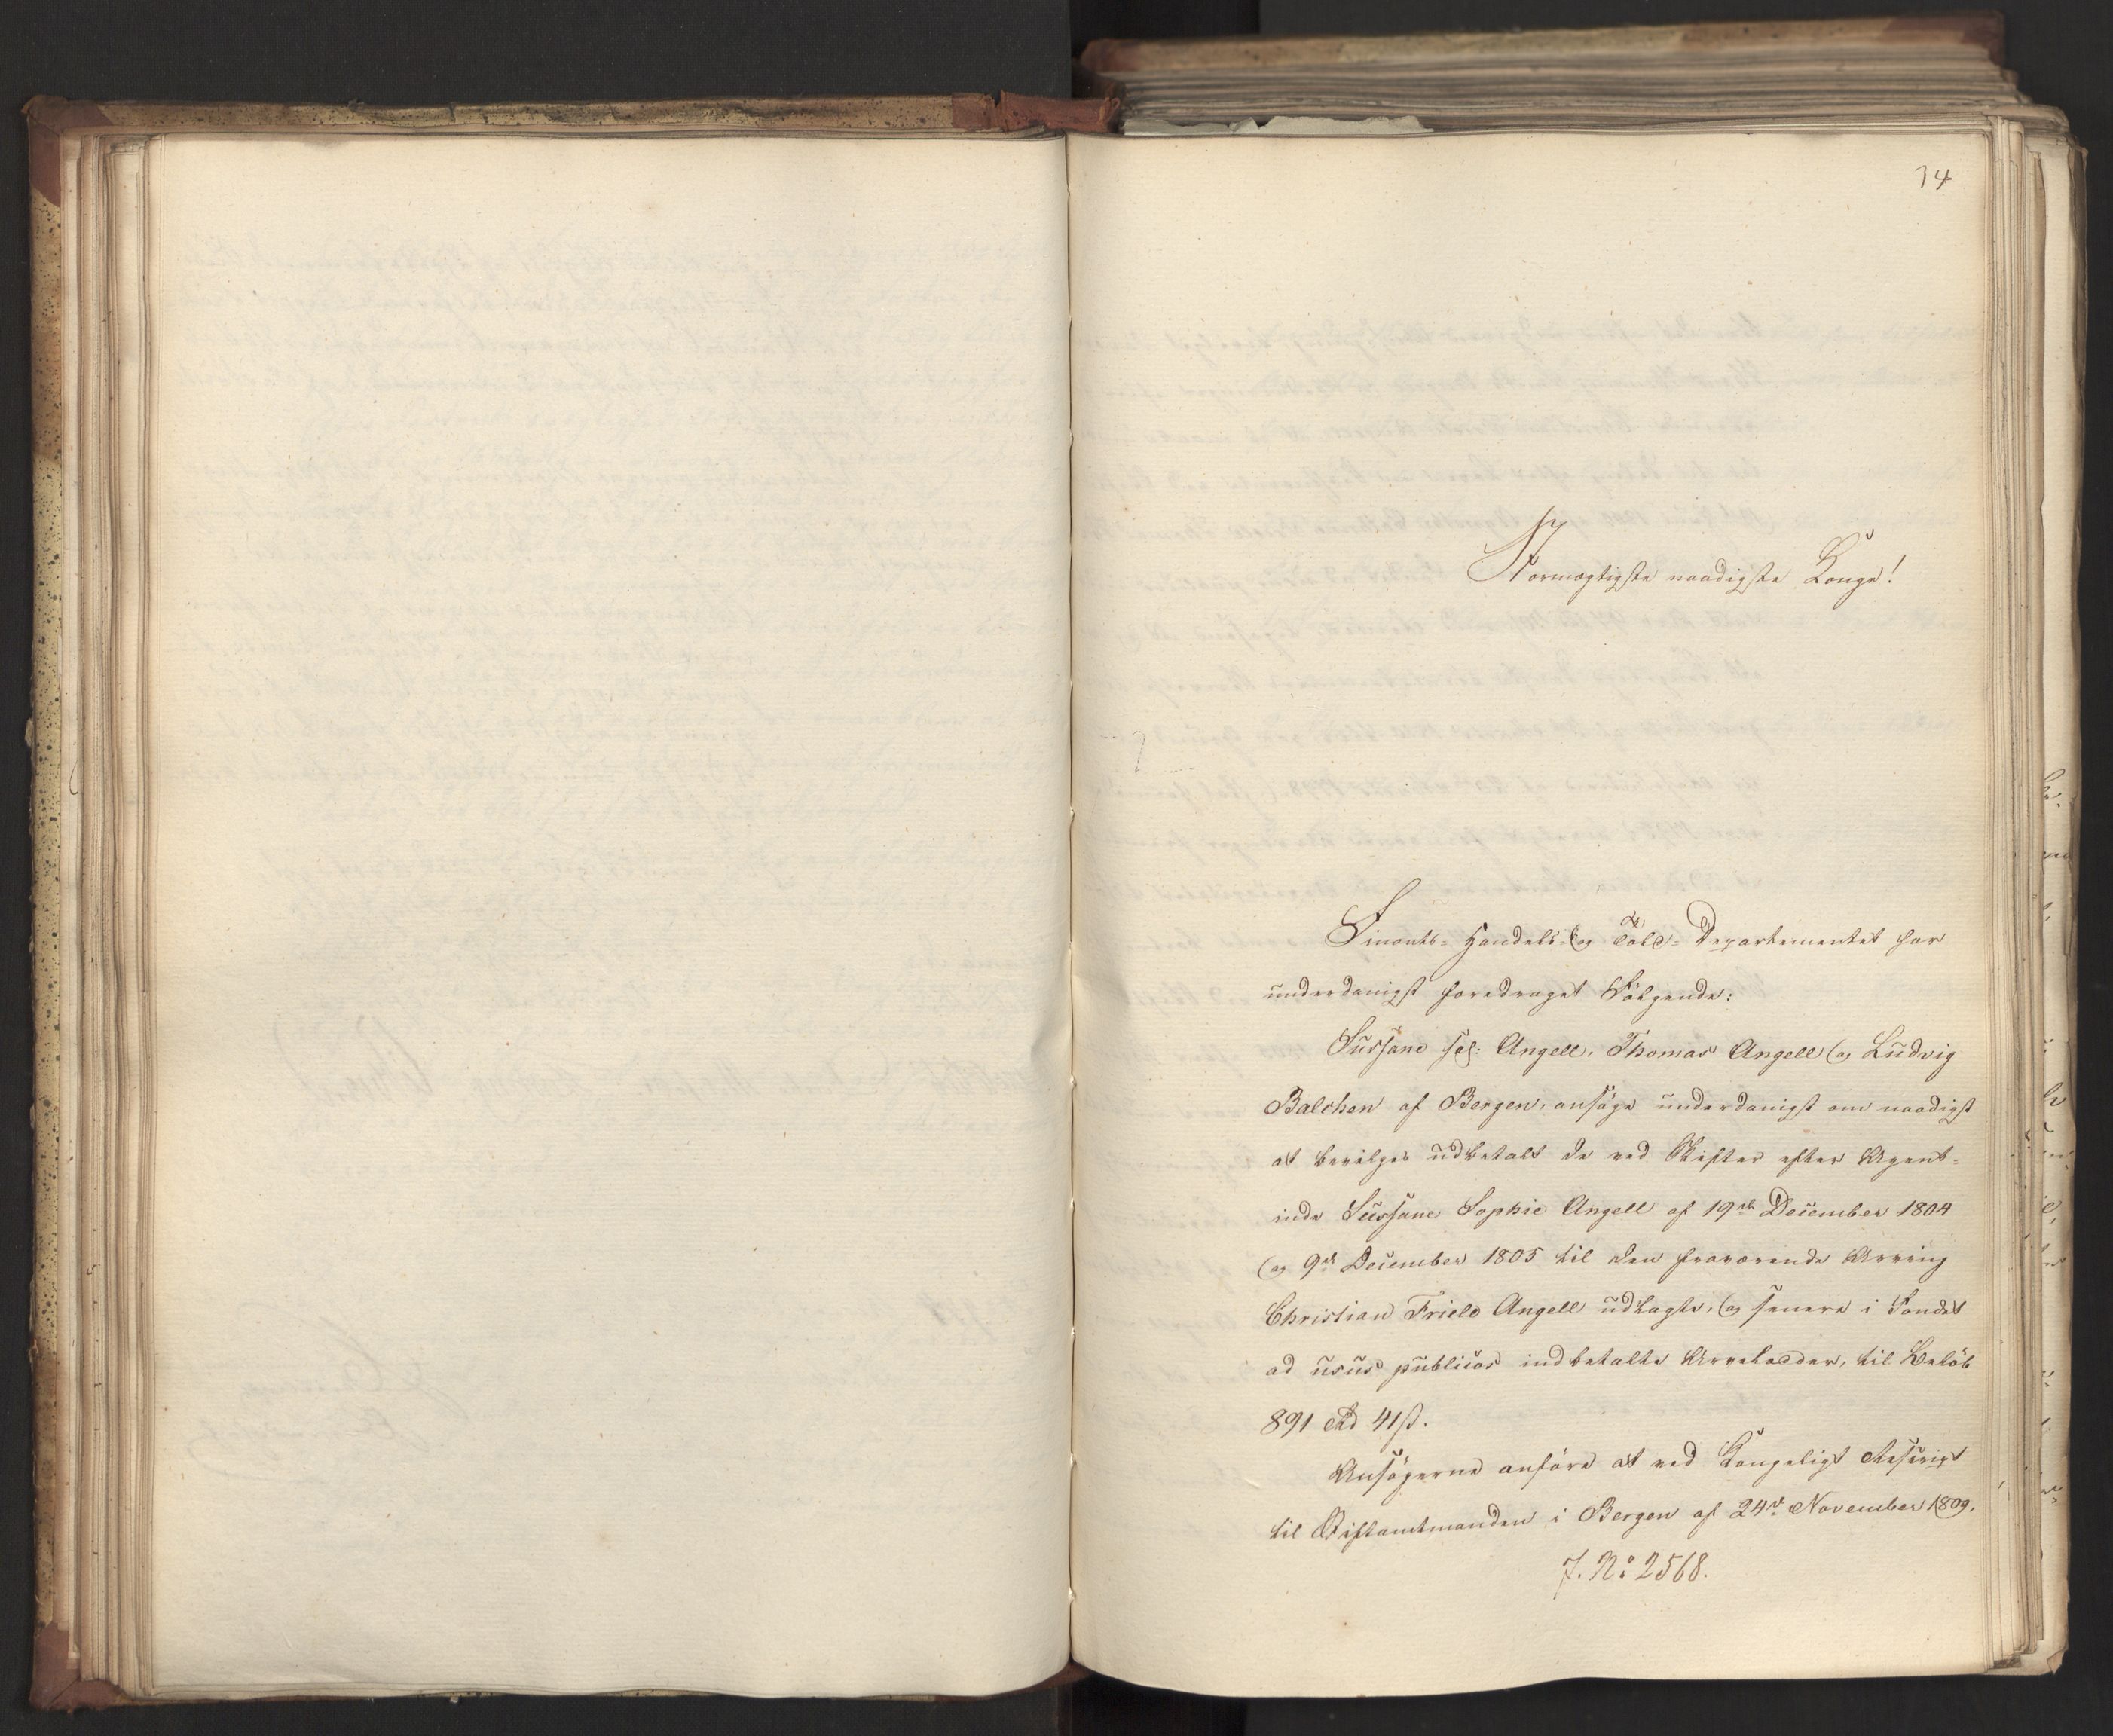 74
Stormægtigste naadigste Konge!
Finants- Handels- og Told-Departementet har
underdanigst foredraget Følgende:
Sussane sal: Angell, Thomas Angell og Ludvig
Balchen af Bergen, ansøge underdanigst om naadigst
at bevilges udbetalt de ved Skifter efter Agent-
inde Sussane Sophie Angell af 19de December 1804
og 9de December 1805 til den fraværende Arving
Christian Friele Angell udlagte, og senere i Fondet
ad usus publicos indbetalte Arvelodder, til Beløb
891 Rd 41 ß.
Ansøgerne anføre at ved Kongeligt Rescript
til Stiftamtmanden i Bergen af 24de November 1809,
J. No 2568.